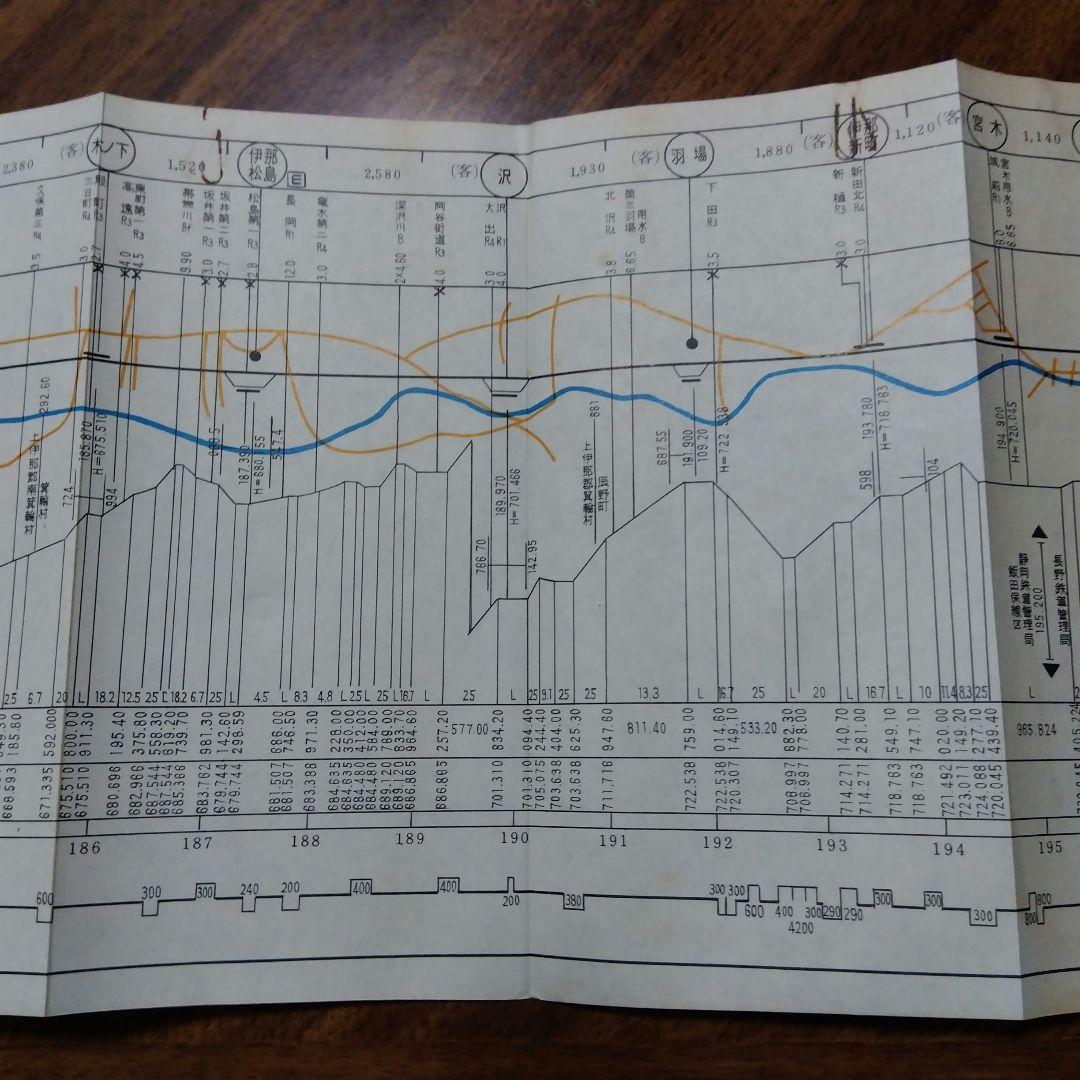 2,380 (客) 木ノ下 1,520 伊那松島 E 2,580 (客) 沢 1,930 (客) 羽場 1,880 (客) 伊那新町 1,120 (客) 宮木 1,140
久保第三 R4
三日町 R4
殿町 R3
高遠 R3
東町第一 R3
帯無川 Bf
坂井第一 R3
坂井第二 R3
松島第一 R3
長岡 R1
竜水第二 R4
深沢川 B
岡谷街道 R3
大出 R4
沢 R1
北沢 R4
用水 B
下田 R3
新樋 R3
新田北 R4
城前 R1
宮木用水 B
3.5 3.0 2.7 4.0 4.5 9.90 3.0 2.7 2.8 12.0 3.0 2×4.60 4.0 3.0 4.0 3.8 6.65 3.5 3.0 3.0 8.0 6.65
292.60
上伊那郡南箕輪村
箕輪村
724
185.870
H=675.510
994
187.390
547.4
786.70
189.970
H=701.466
142.95
881
上伊那郡箕輪村
辰野町
687.55
191.900
109.20
H=722.538
193.780
H=718.763
598
104
194.900
H=720.045
静岡鉄道管理局
飯田保線区
195.200
長野鉄道管理局
25 6.7 20 L 18.2 12.5 25 L 18.2 6.7 25 L 4.5 L 8.3 4.8 L 25 L 25 16.7 L 25 L 25 9.1 25 25 13.3 L 16.7 25 L 20 L 16.7 L 10 11.4 8.3 25 L
185.80 592.000 800.00 911.30 195.40 375.80 558.30 619.40 739.70 981.30 142.60 298.59 686.00 746.50 971.30 228.00 347.00 412.00 584.00 769.00 833.70 964.60 257.20 577.00 834.20 094.40 204.40 444.00 625.30 947.60 811.40 759.00 014.60 149.10 533.20 662.30 778.00 140.70 281.00 549.10 747.10 020.00 149.20 277.10 439.40 965.824
668.593 671.335 675.510 675.510 680.696 682.966 687.544 687.544 685.366 683.762 679.744 679.744 681.507 681.507 683.388 684.635 684.635 684.480 684.480 689.120 689.120 686.865 686.865 701.310 701.310 705.675 703.638 703.638 711.716 722.538 722.538 720.307 706.997 706.997 714.271 714.271 718.763 718.763 721.492 723.011 724.088 720.045
186 187 188 189 190 191 192 193 194 195
600 300 300 240 200 400 400 200 380 300 300 600 400 4200 300 290 290 300 300 300 800 800